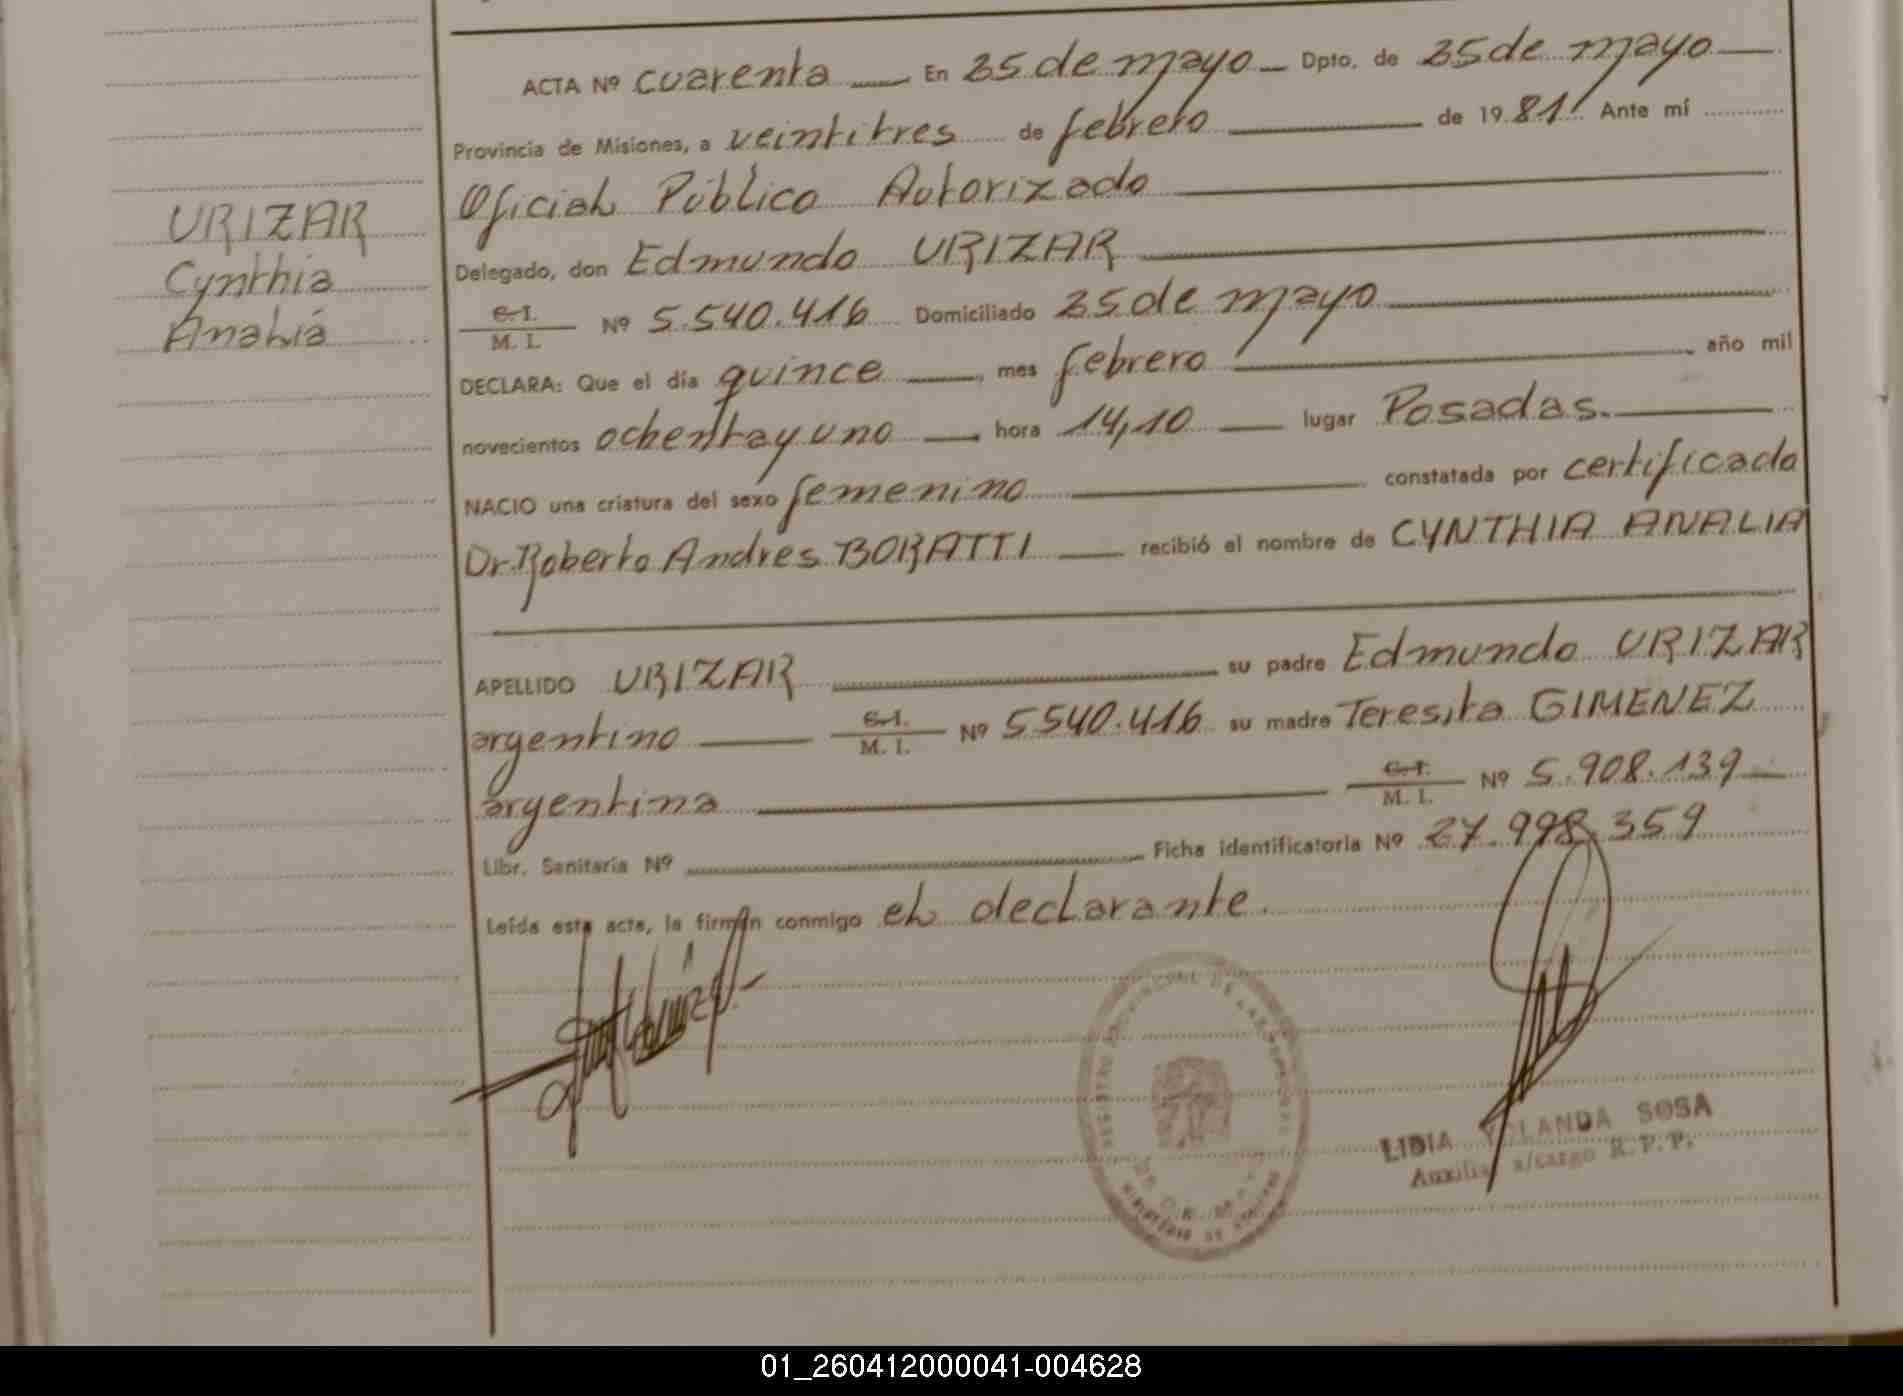 ACTA Nº cuarenta En 25 de mayo Dpto. de 25 de mayo
Provincia de Misiones, a veintitres de febrero de 1981. Ante mí
Oficial Público Autorizado
Delegado, don Edmundo URIZAR
C.I. M. I. Nº 5.540.416 Domiciliado 25 de mayo
DECLARA: Que el día quince, mes febrero año mil
novecientos ochenta y uno, hora 14,10 lugar Posadas.
NACIO una criatura del sexo femenino constatada por certificado
Dr. Roberto Andres BORATTI recibió el nombre de CYNTHIA ANALIA
APELLIDO URIZAR su padre Edmundo URIZAR
argentino C.I. M. I. Nº 5.540.416 su madre Teresita GIMENEZ
argentina C.I. M. I. Nº 5.908.139
Libr. Sanitaria Nº Ficha identificatoria Nº 27.998.359
Leída esta acta, la firman conmigo el declarante.
URIZAR
Cynthia
Analiá
LIDIA YOLANDA SOSA
Auxiliar a/cargo R.P.P.
01_260412000041-004628